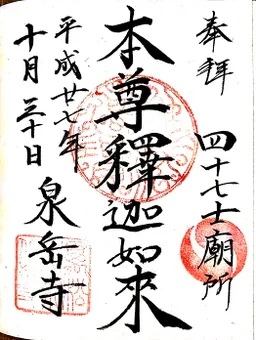 奉拝
四十七士廟所
本尊釋迦如來
平成廿七年
十月三十日
泉岳寺